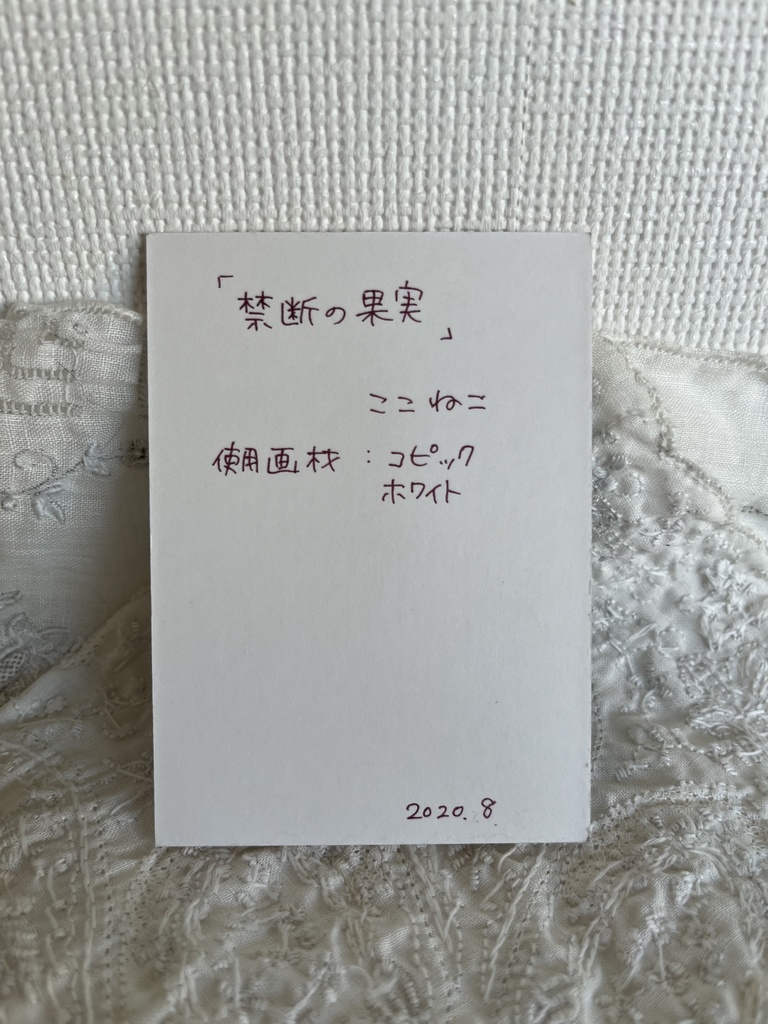 「禁断の果実」
ここねこ
使用画材：コピック
ホワイト
2020.8